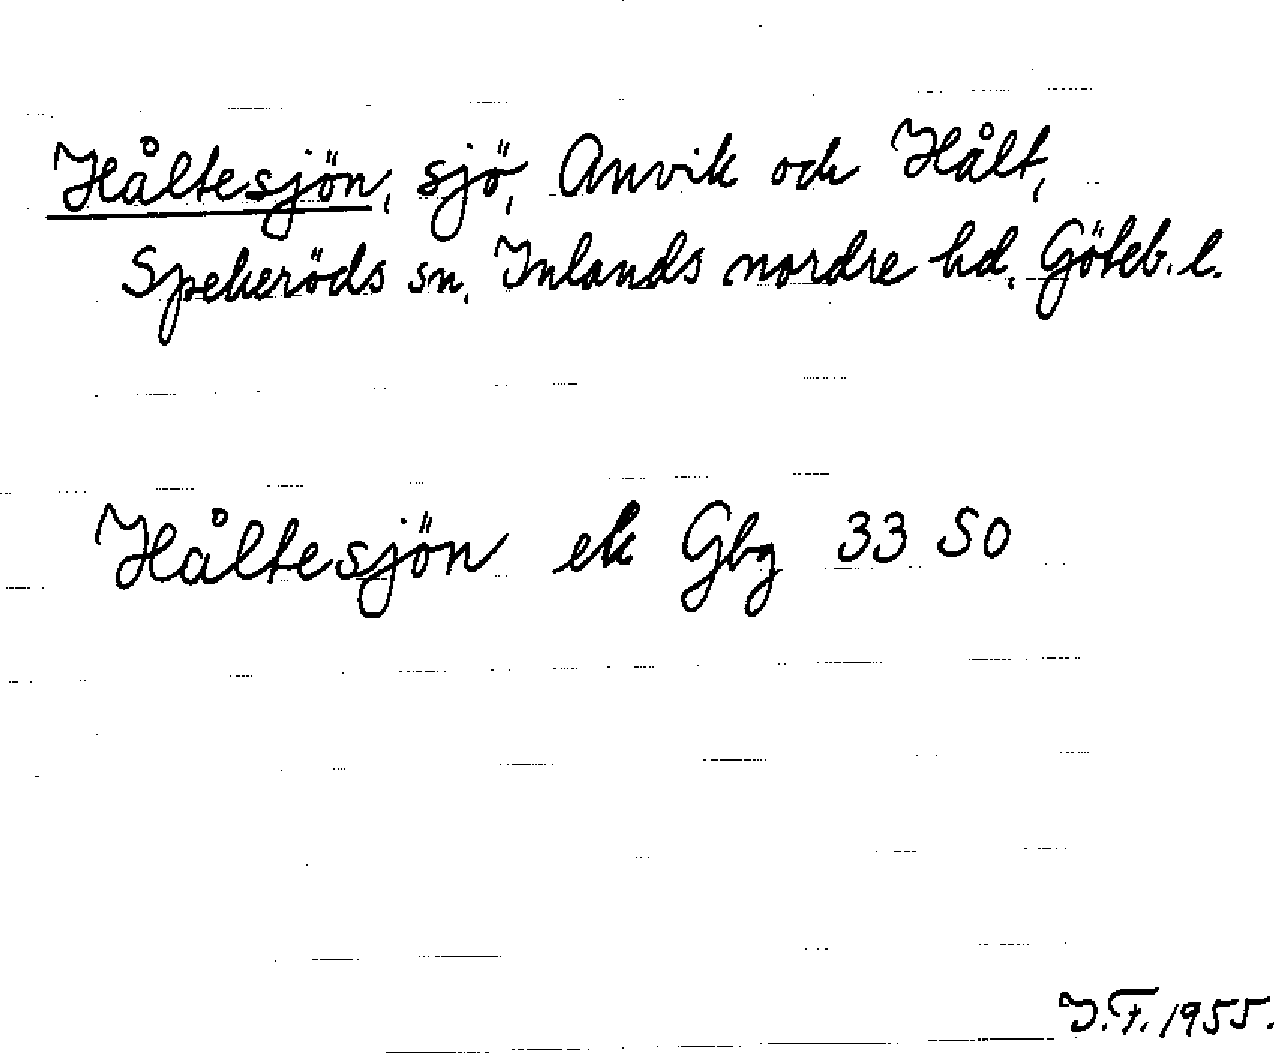 Håltesjön, sjö, Anvik och Hålt,
Spekeröds sn, Inlands nordre hd, Göteb. l.
Håltesjön ek Gbg 33 SO
I.F. 1955.